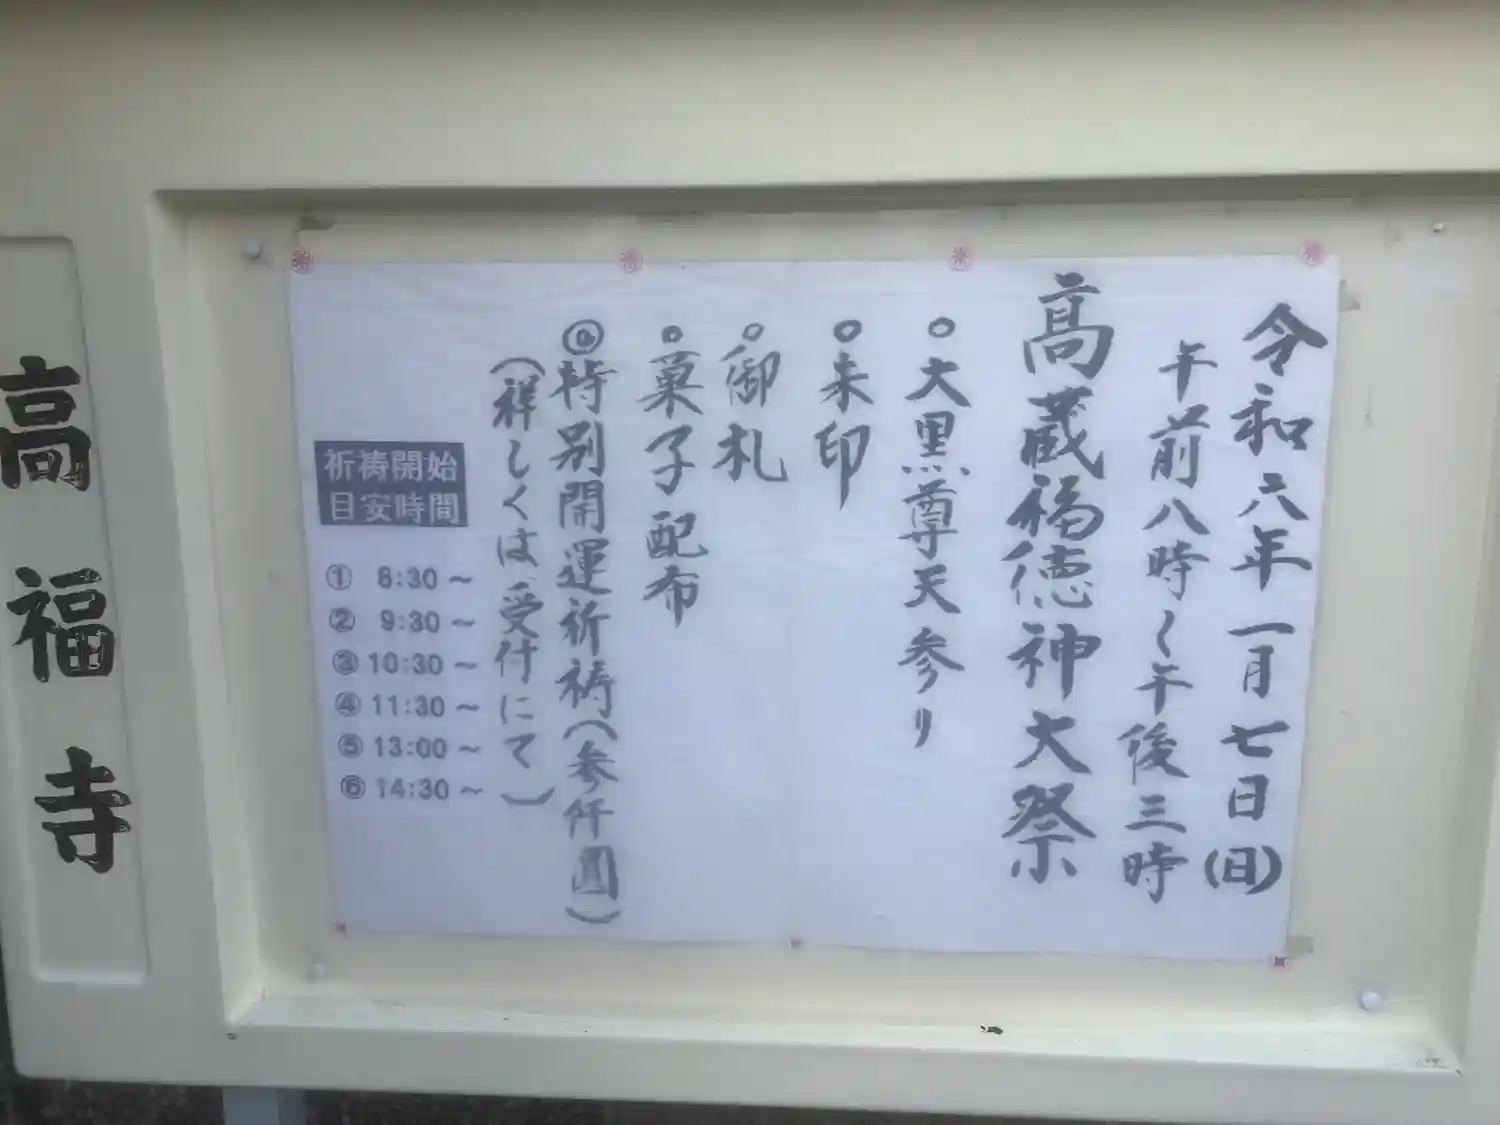 令和六年一月七日(日)
午前八時~午後三時
高蔵福徳神大祭
○大黒尊天参り
○朱印
○御札
○菓子配布
◎特別開運祈祷(参仟圓)
(祥しくは受付にて)
祈祷開始
目安時間
① 8:30～
② 9:30～
③ 10:30～
④ 11:30～
⑤ 13:00～
⑥ 14:30～
高福寺